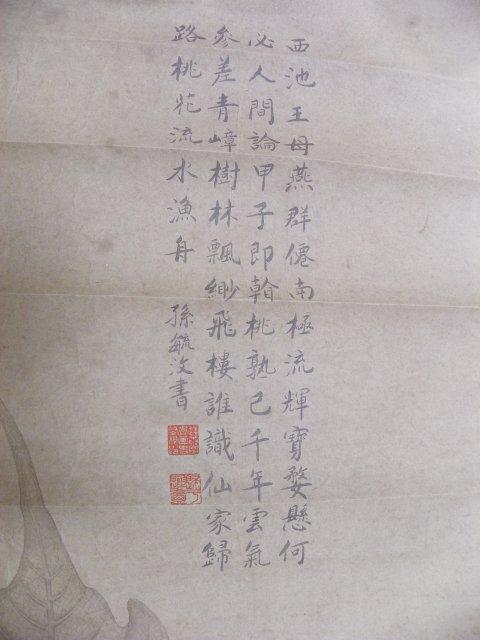 西池王母燕群僊南極流輝寶婺懸何
必人間論甲子即翰桃熟已千年雲氣
參差青嶂樹林飄緲飛樓誰識仙家歸
路桃花流水漁舟
孫毓汶書